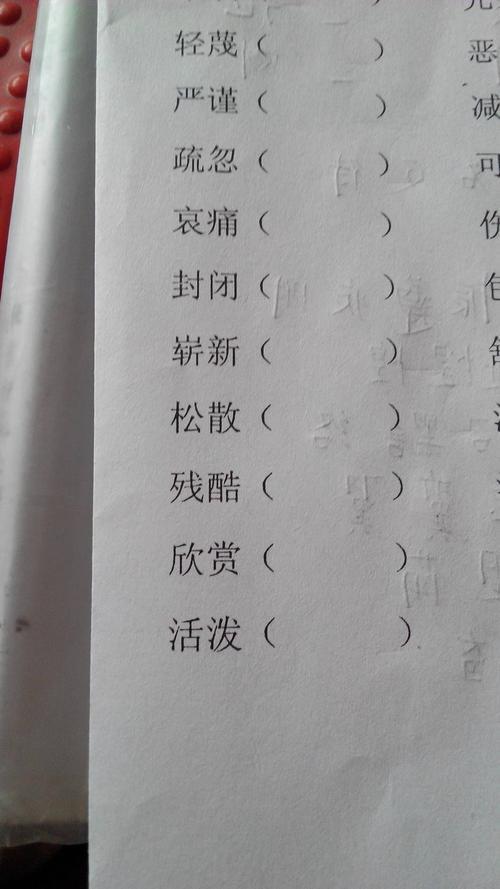 轻蔑（ ） 恶
严谨（ ） 减
疏忽（ ） 可
哀痛（ ）
封闭（ ）
崭新（ ）
松散（ ）
残酷（ ）
欣赏（ ）
活泼（ ）